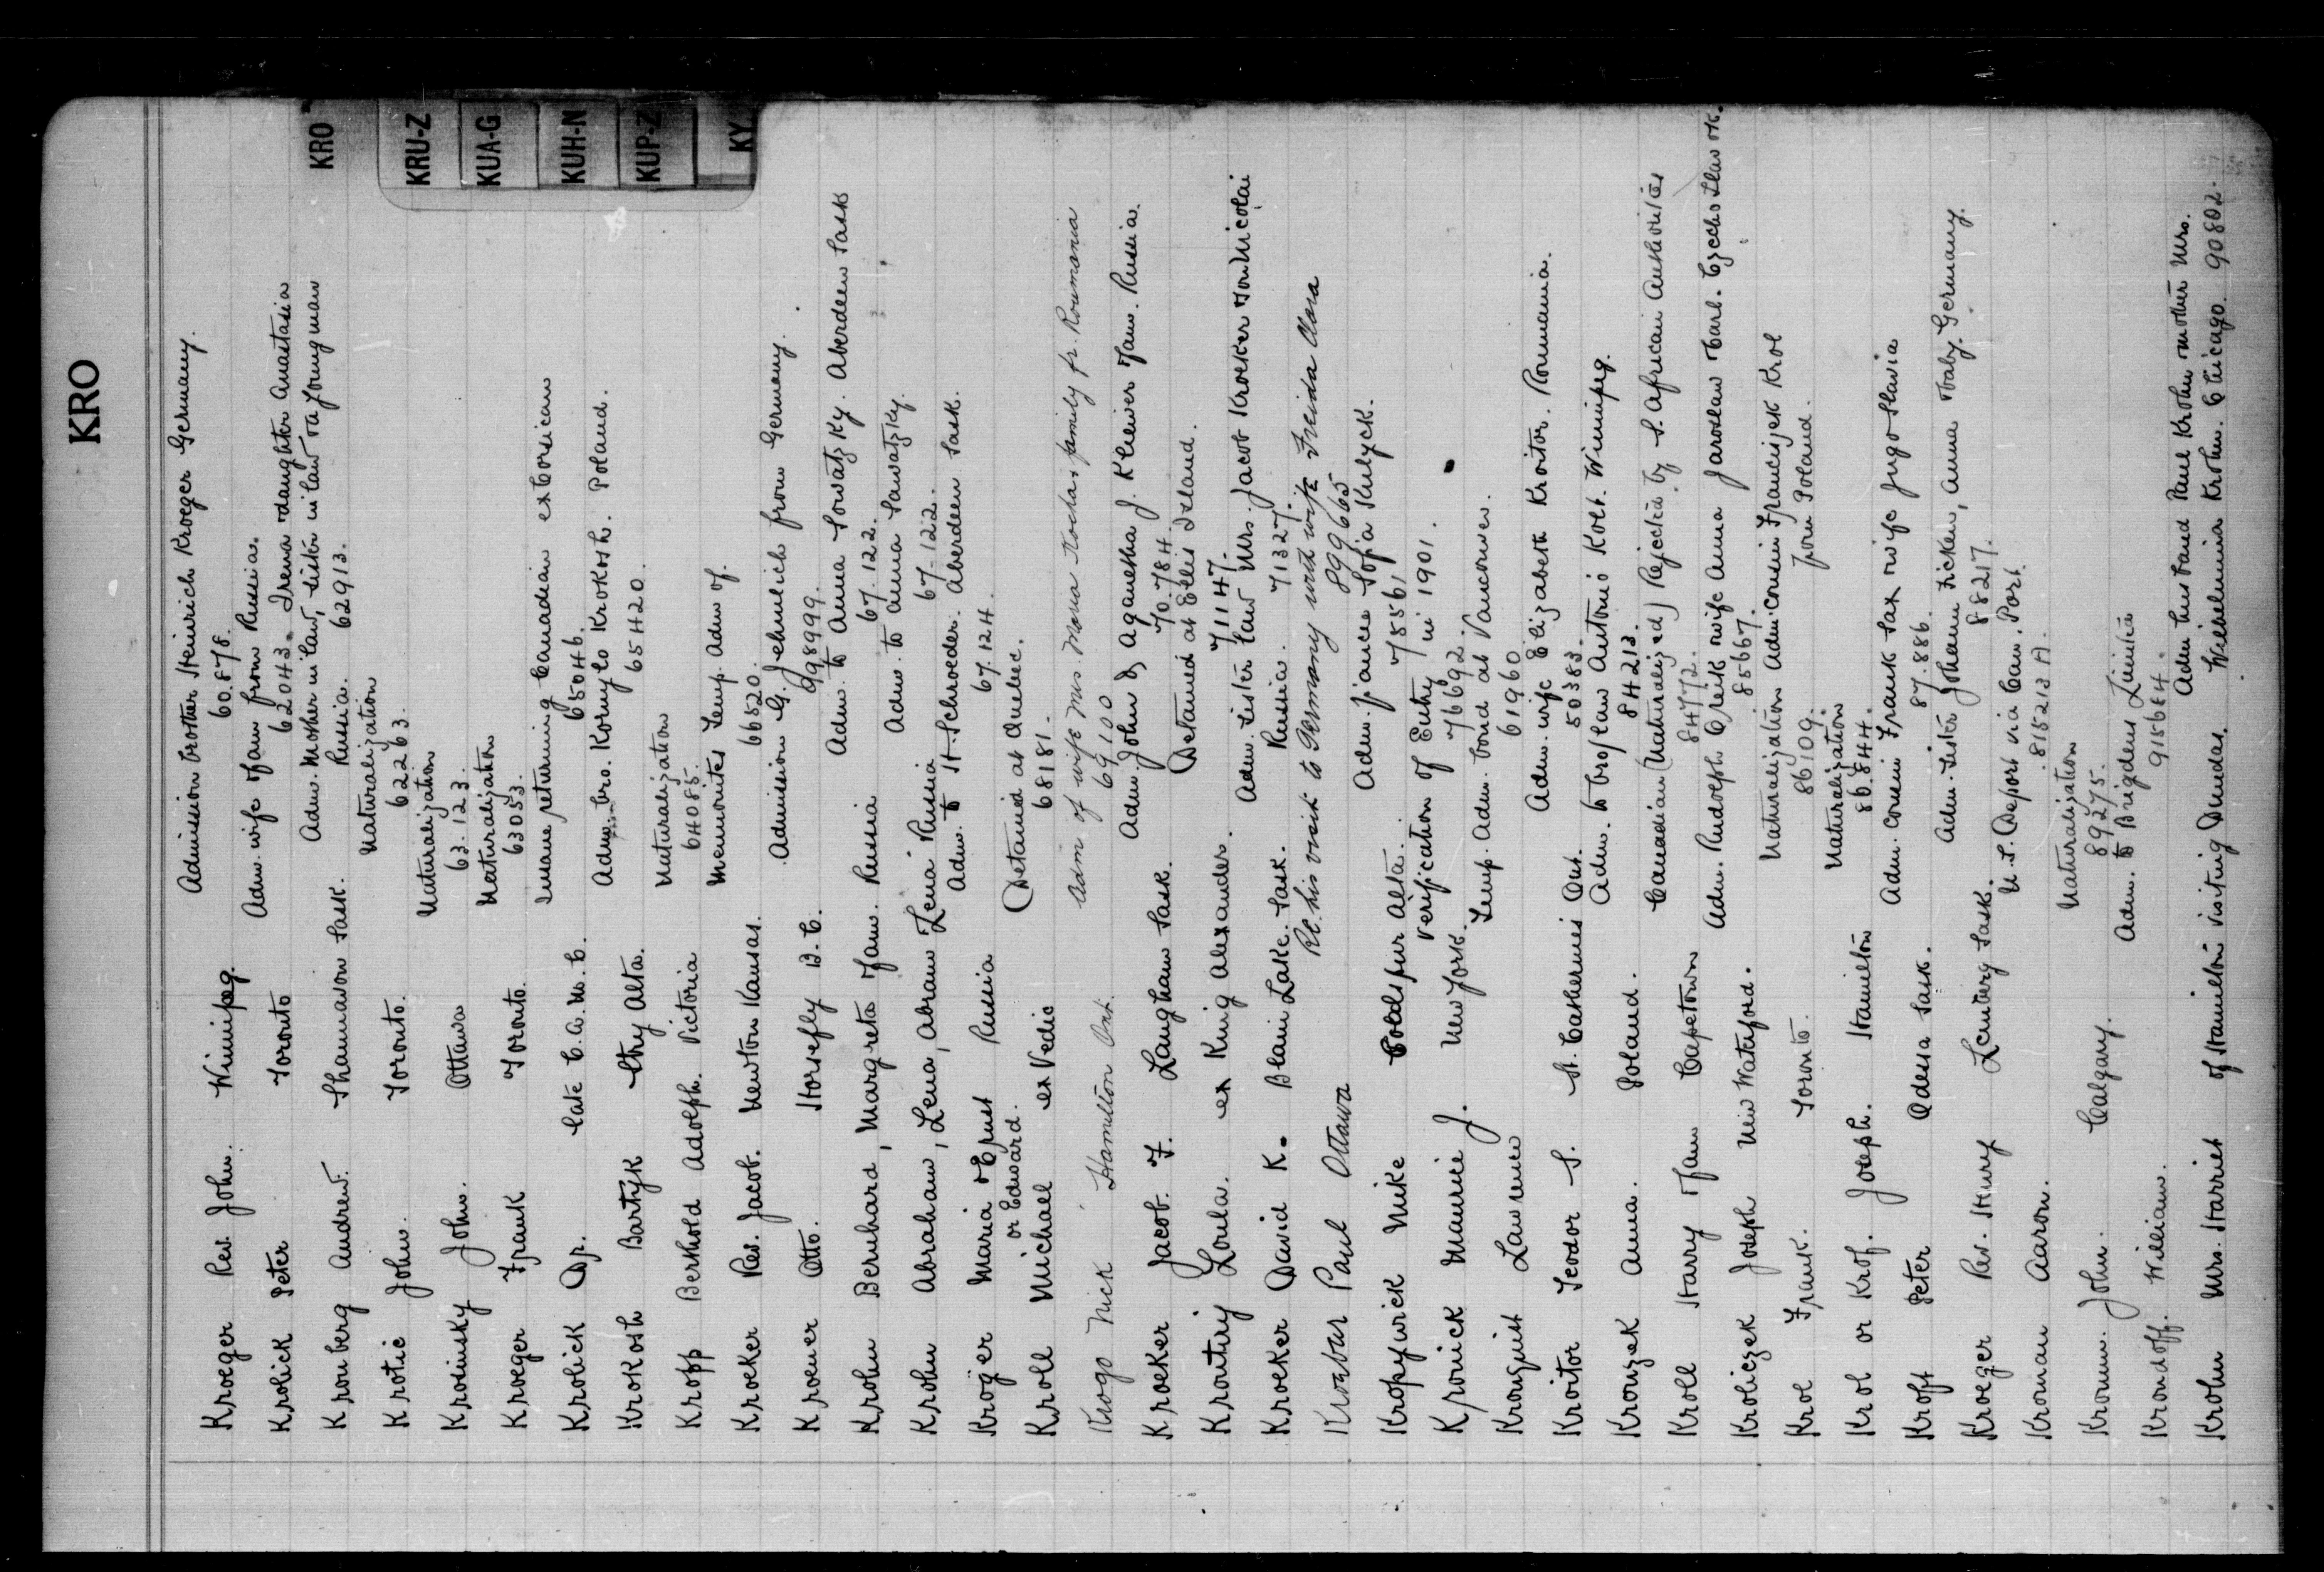 KRO
KRO
KRU-Z
KUA-G
KUH-N
KUP-Z
KY
Kroeger Rev. John. Winnipeg. Admission brother Heinrich Kroeger Germany.
60.878.
Krolick Peter Toronto Adm. wife & fam from Russia.
62043. Irena & daughter Anastasia
Kronberg Andrew. Shaunavon Sask. Adm. Mother in law, sister in law & a young man
Russia. 62913.
Krotic John. Toronto. Naturalization
62263.
Krosinsky John. Ottawa Naturalization
63.123.
Kroeger Frank Toronto. Naturalization
63053.
Krolick Dp. late C.A.M.C. Insane returning Canadian ex Corsican
65046.
Krokosh Bartyk Stry Alta. Adm. bro. Kornylo Krokosh. Poland.
65420.
Kropp Berthold Adolph. Victoria Naturalization
64085.
Kroeker Rev. Jacob. Newton Kansas. Mennonites Temp. Adm of.
66520.
Kroener Otto. Horsefly B.C. Admission G. Jehnlich from Germany.
998999.
Krohn Bernhard, Margreta & fam. Russia Adm. to Anna Sowatzky. Aberdeen Sask
67.122.
Krohn Abraham, Lena, Abram Lena Russia Adm. to Anna Sawatzky.
67.122.
Kroger Maria & Ernst Russia Adm. to H. Schroeder. Aberdeen Sask.
or Edward. 67.124.
Kroll Michael ex Vedic Detained at Quebec.
68181.
Krogo Nick Hamilton Ont. Adm of wife Mrs. Maria Kocha & family fr. Roumania
69100
Kroeker Jacob. F. Langham Sask. Adm. John & Aganetha J. Kliewer & fam. Russia.
70.784.
Kroutirj Loula. ex King Alexander. Detained at Ellis Island.
71147.
Kroeker David K. Blaine Lake. Sask. Adm. Sister & law Mrs. Jacob Kroeker & son Nicolai
Russia. 71327.
Krosbar Paul Ottawa Re. his visit to Germany with wife Freida Clara
899665
Kropywick Mike Coldspur Alta. Adm. fiancee Sofia Kulyck.
78561
Kronick Maurice J. New York. Verification of Entry in 1901.
76692.
Kronquist Lawrence Temp. Adm. bond at Vancouver.
61960
Kroitor Teodor S. St. Catherines Ont. Adm. wife Elizabeth Kroitor. Roumania.
50383.
Krowzek Anna. Poland. Adm. to bro & law Antonio Kolt. Winnipeg.
84213.
Kroll Harry & fam Capetown Canadian (Naturalized) Rejected by S. African Authorities
8472.
Kroliczek Joseph New Waterford. Adm. Rudolph Cjreik & wife Anna Jaroslaw & Carl. Czecho Slavok.
85667.
Krol Frank. Toronto. Naturalization Adm. Cousin Francijek Krol
86109. from Poland.
Krol or Krof. Joseph. Hamilton Naturalization
86.844.
Kroff Peter Odessa Sask. Adm. cousin Frank Sax & wife Jugo Slavia
87.886.
Kroeger Rev. Henry Lemberg Sask. Adm. Sister Johann Ficken, Anna & baby. Germany.
88217.
Kroman Aaron. U.S. Deport via Can. Port.
815213 A.
Kromm. John. Calgary. Naturalization
89275.
Krondoff. William. Adm. to Brigden Limited
915684.
Krohn Mrs. Harriet of Hamilton visiting Dundas. Adm husband Paul Krohn & mother Mrs.
Wilhelmina Krohn. Chicago. 90802.